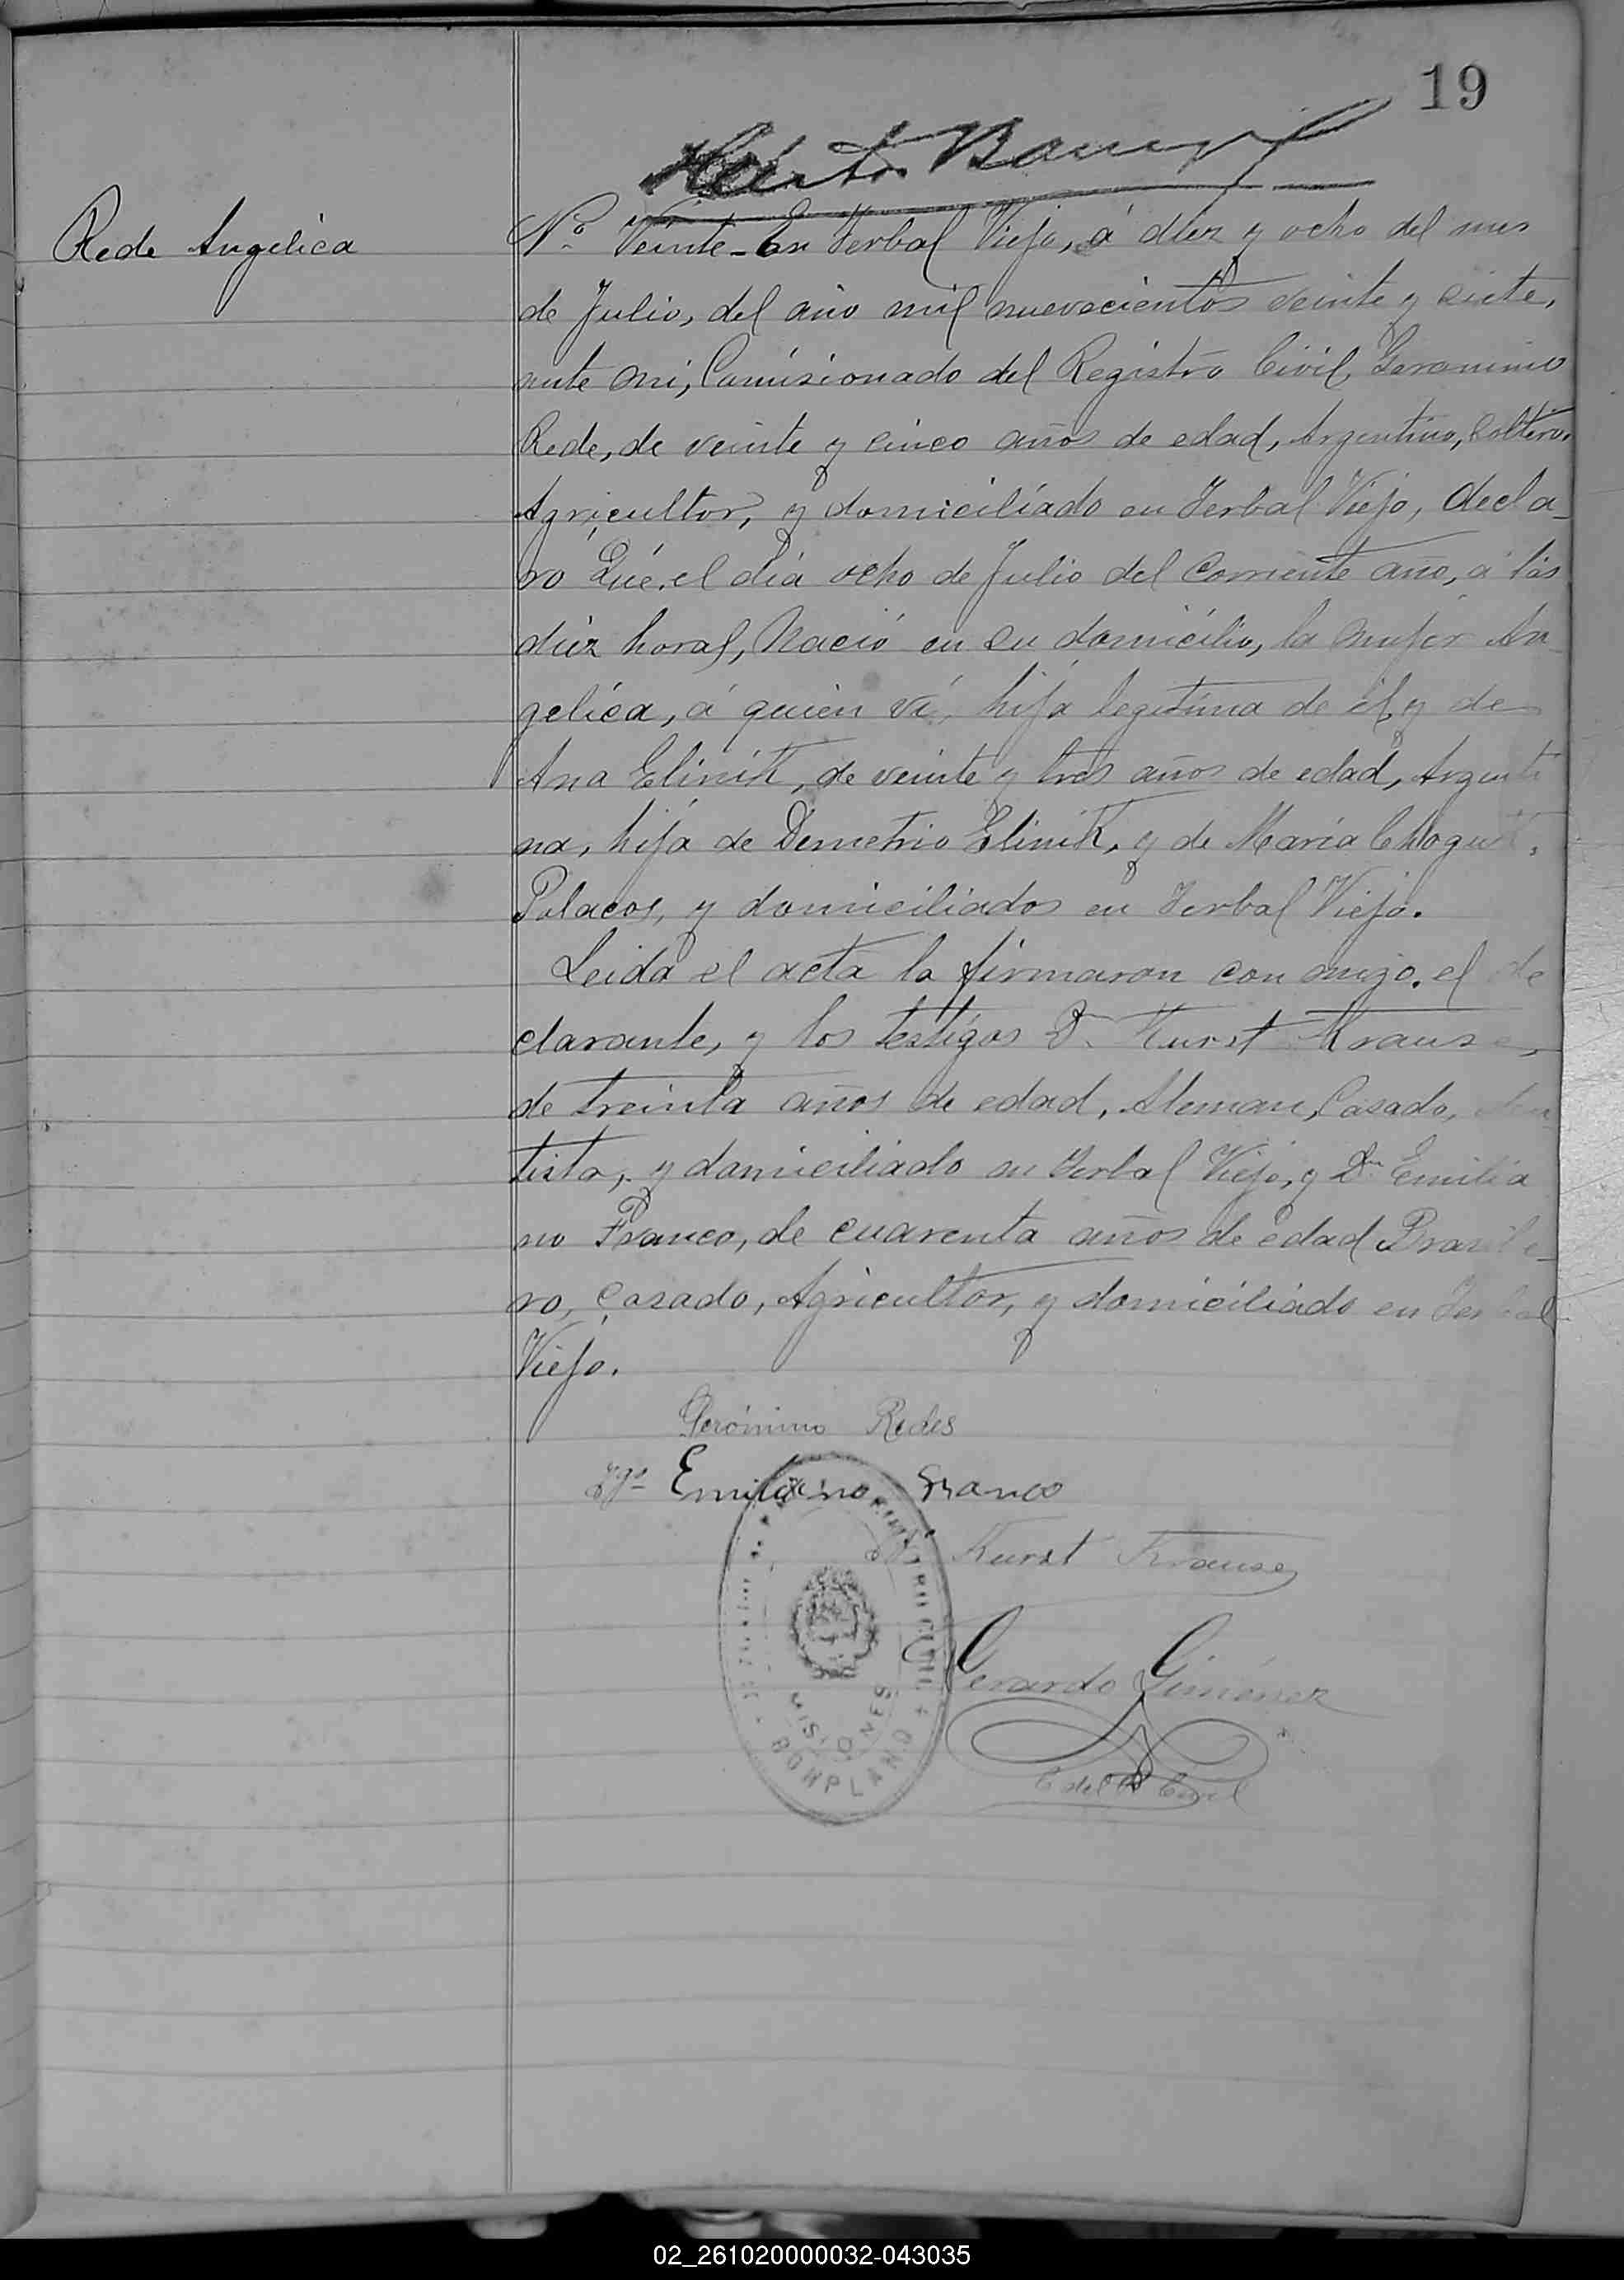 19
Rede Angelica
Nº Veinte - En Yerbal Viejo, á diez y ocho del mes
de Julio, del año mil nuevecientos veinte y siete,
ante mi, Comisionado del Registro Civil, Geronimo
Rede, de veinte y cinco años de edad, Argentino, Soltero,
Agricultor, y domiciliado en Yerbal Viejo, decla_
ro Que, el día ocho de Julio del Corriente año, á las
diez horas, Nació en su domicilio, la mujer An_
gelica, á quien ví, hija legitima de él y de
Ana Elinik, de veinte y tres años de edad, Argenti
na, hija de Demetrio Elinik, y de María
Polacos, y domiciliados en Yerbal Viejo.
Leida el acta la firmaron con migo. el de
clarante, y los testigos D. Kurst Krause,
de treinta años de edad, Aleman, Casado,
tista, y domiciliado en Yerbal Viejo, y Dn Emilia
no Franco, de cuarenta años de edad Brasile_
ro, Casado, Agricultor, y domiciliado en Yerbal
Viejo.
Gerónimo Redes
Emiliano Franco
Kurst Krause
Gerardo Giménez
C del R Civil
REGISTRO CIVIL
MISIONES
BONPLAND
02_261020000032-043035